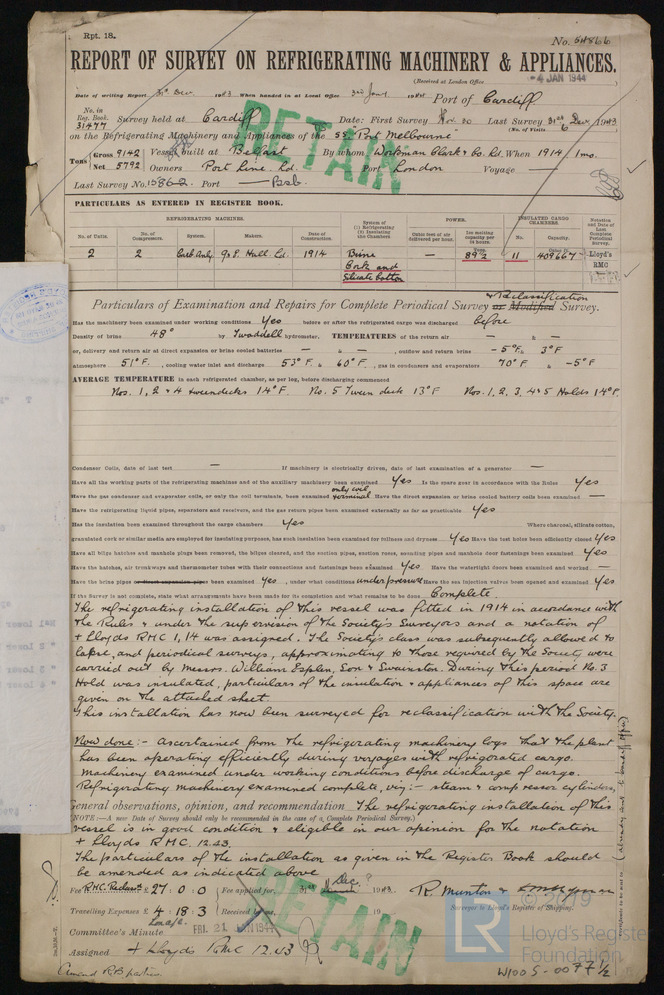 Rpt. 18.
No. 54866
REPORT OF SURVEY ON REFRIGERATING MACHINERY & APPLIANCES.
(Received at London Office -4 JAN 1944
Date of writing Report 31st Dec. 1943 When handed in at Local Office 3rd Jany. 1944 Port of Cardiff
No. in Reg. Book. Survey held at Cardiff Date: First Survey Nov. 20 Last Survey 31st Dec. 1943
31477 (No. of Visits 6
on the Refrigerating Machinery and Appliances of the SS "Port Melbourne"
RETAIN
Tons Gross 9142 Vessel built at Belfast By whom Workman Clark & Co. Ld. When 1914 1mo.
Net 5792 Owners Port Line. Ld. Port London Voyage —
Last Survey No. 15862 Port Bsb.
PARTICULARS AS ENTERED IN REGISTER BOOK.
REFRIGERATING MACHINES. System of (1) Refrigerating (2) Insulating the Chambers POWER. INSULATED CARGO CHAMBERS. Notation and Date of Last Complete Periodical Survey.
No. of Units. No. of Compressors. System. Makers. Date of Construction. Cubic feet of air delivered per hour. Ice melting capacity per 24 hours. No. Capacity.
2 2 Carb. Anhy. J & E. Hall. Ld. 1914 Brine Cork and Silicate Cotton — 89.2 11 409667 Lloyd's RMC
Particulars of Examination and Repairs for Complete Periodical Survey or Modified & Reclassification Survey.
Has the machinery been examined under working conditions Yes before or after the refrigerated cargo was discharged before
Density of brine 48° by Twaddell hydrometer. TEMPERATURES of the return air — & —
or, delivery and return air at direct expansion or brine cooled batteries — & — , outflow and return brine -5°F. & 3°F
atmosphere 51°F. , cooling water inlet and discharge 53°F. & 60°F. , gas in condensers and evaporators 70°F & -5°F
AVERAGE TEMPERATURE in each refrigerated chamber, as per log, before discharging commenced
Nos. 1, 2 & 4 tweendecks 14°F. No. 5 Tween deck 13°F Nos. 1, 2, 3, 4 & 5 Holds 14°F.
Condenser Coils, date of last test — If machinery is electrically driven, date of last examination of a generator —
Have all the working parts of the refrigerating machines and of the auxiliary machinery been examined Yes Is the spare gear in accordance with the Rules Yes
Have the gas condenser and evaporator coils, or only the coil terminals, been examined only coil terminal Have the direct expansion or brine cooled battery coils been examined —
Have the refrigerating liquid pipes, separators and receivers, and the gas return pipes been examined externally as far as practicable Yes
Has the insulation been examined throughout the cargo chambers Yes Where charcoal, silicate cotton,
granulated cork or similar media are employed for insulating purposes, has such insulation been examined for fullness and dryness Yes Have the test holes been efficiently closed Yes
Have all bilge hatches and manhole plugs been removed, the bilges cleared, and the suction pipes, suction roses, sounding pipes and manhole door fastenings been examined Yes
Have the hatches, air trunkways and thermometer tubes with their connections and fastenings been examined Yes Have the watertight doors been examined and worked —
Have the brine pipes or direct expansion pipes been examined Yes , under what conditions under pressure Have the sea injection valves been opened and examined Yes
If the Survey is not complete, state what arrangements have been made for its completion and what remains to be done Complete.
The refrigerating installation of this vessel was fitted in 1914 in accordance with
the Rules & under the supervision of the Society's Surveyors and a notation of
+ Lloyds RMC 1,14 was assigned. The Society's class was subsequently allowed to
lapse, and periodical surveys, approximating to those required by the Society were
carried out by Messrs. William Esplen, Son & Swainston. During this period No. 3
Hold was insulated, particulars of the insulation & appliances of this space are
given on the attached sheet.
This installation has now been surveyed for reclassification with the Society.
Now done:- Ascertained from the refrigerating machinery logs that the plant
has been operating efficiently during voyages with refrigerated cargo.
Machinery examined under working conditions before discharge of cargo.
Refrigerating machinery examined complete, viz:- steam & compressor cylinders,
General observations, opinion, and recommendation The refrigerating installation of this
(NOTE:—A new Date of Survey should only be recommended in the case of a Complete Periodical Survey.)
vessel is in good condition & eligible in our opinion for the notation
+ Lloyds RMC. 12.43.
The particulars of the installation as given in the Register Book should
be amended as indicated above
Fee RMC Reclassn £ 27 : 0 : 0 Fee applied for, 31st Dec. 1943. R. Munton &
Travelling Expenses £ 4 : 18 : 3 Received by me, 19 Surveyor to Lloyd's Register of Shipping.
Committee's Minute FRI. 21 JAN 1944
Assigned + Lloyds RMC 12.43
RETAIN
© 2019
LR
Lloyd's Register
Foundation
W1005-0077 1/2